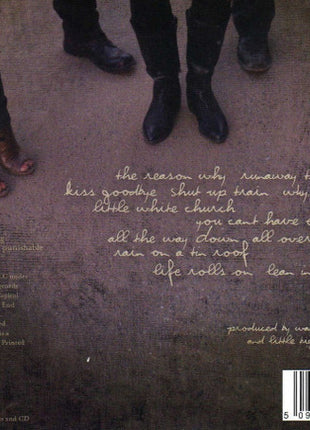 the reason why runaway t
kiss goodbye shut up train why
little white church
you cant have e
all the way down all over
rain on a tin roof
life rolls on lean in
punishable
C under
ecords
apitol
End
d
is a
Printed
and CD
produced by wa
and little big
5 09